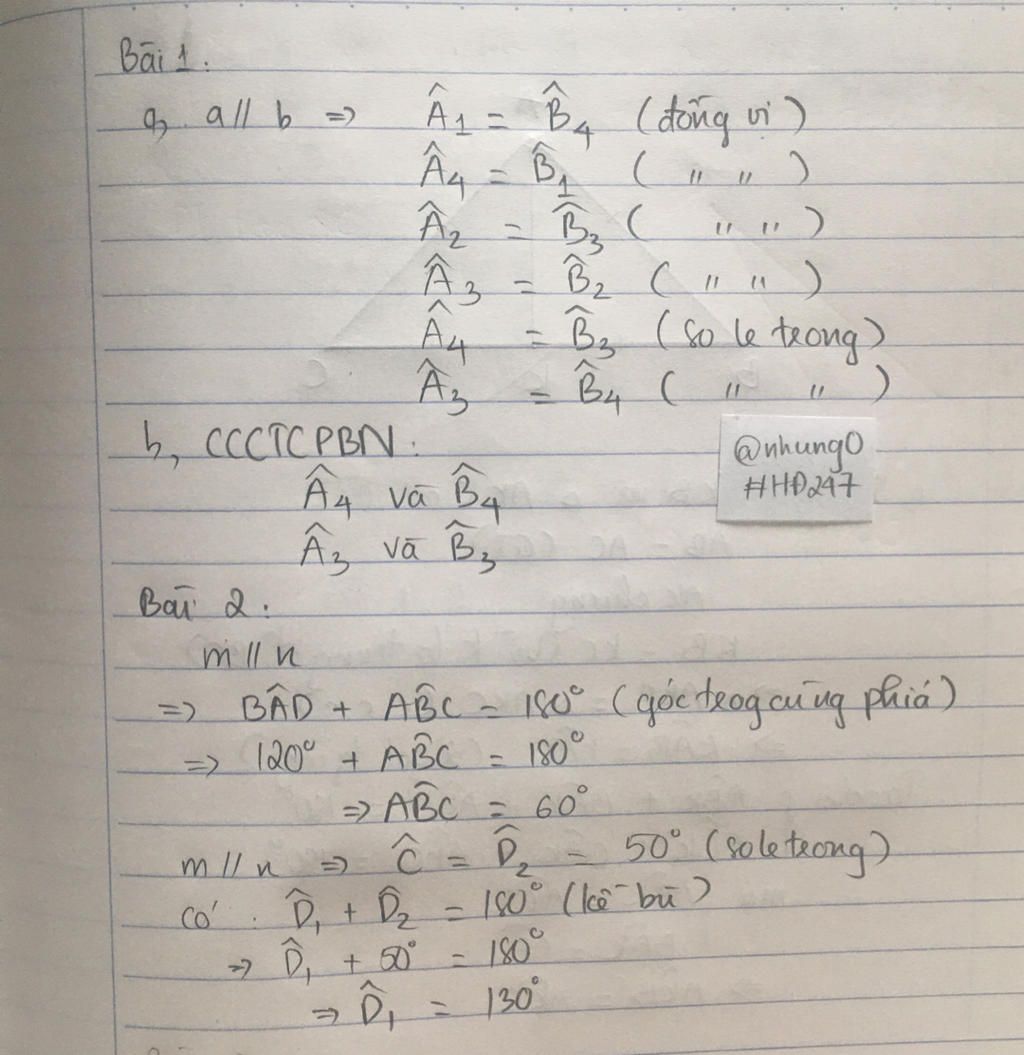 Bài 1:
a, a // b => Â1 = B̂4 (đồng vị)
Â4 = B̂1 ( " " )
Â2 = B̂3 ( " " )
Â3 = B̂2 ( " " )
Â4 = B̂3 (so le trong)
Â3 = B̂4 ( " " )
b, CCCTCPBN:
Â4 và B̂4
Â3 và B̂3
@nhung0
#HĐ247
Bài 2:
m // n
=> BÂD + AB̂C = 180° (góc trog cùng phiá)
=> 120° + AB̂C = 180°
=> AB̂C = 60°
m // n => Ĉ = D̂2 = 50° (so le trong)
có: D̂1 + D̂2 = 180° (kề bù)
=> D̂1 + 50° = 180°
=> D̂1 = 130°